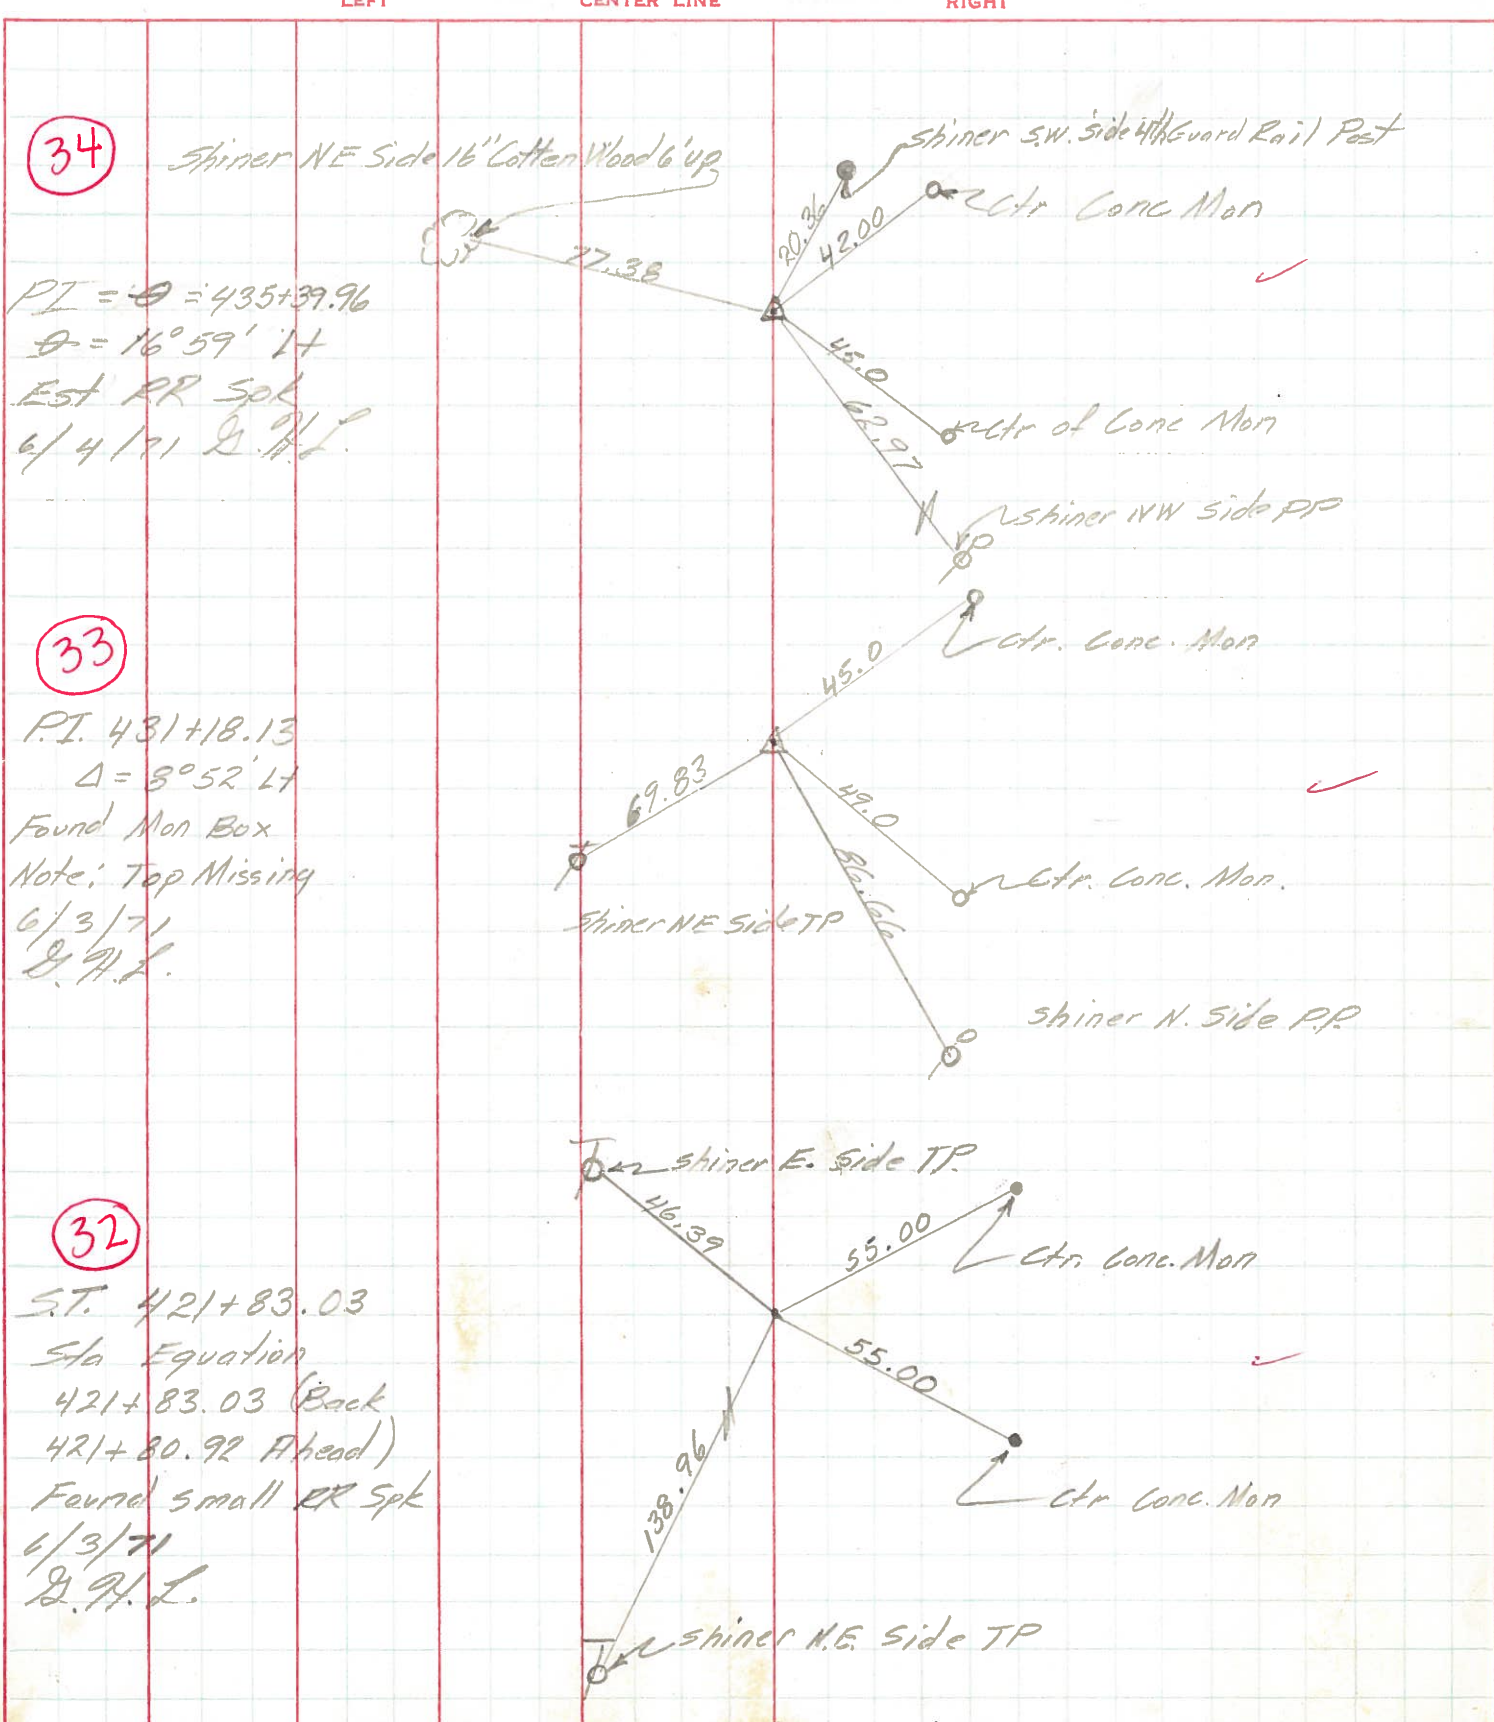 LEFT CENTER LINE RIGHT
34
Shiner NE Side 16" Cotten Wood 6' up
shiner S.W. Side 4th Guard Rail Post
Ctr Conc Mon
20.36
42.00
77.38
PI = θ = 435+39.96
θ = 16°59' Lt
Est RR Spk
6/4/71 G.H.L.
45.0
62.97
Ctr of Conc Mon
shiner NW side PP
33
Ctr. Conc. Mon
45.0
P.I. 431+18.13
Δ = 8°52' Lt
Found Mon Box
Note: Top Missing
6/3/71
G.H.L.
69.83
49.0
86.66
Ctr. Conc. Mon.
Shiner NE Side TP
shiner N. Side P.P.
32
shiner E. Side TP.
46.39
55.00
Ctr. Conc. Mon
S.T. 421+83.03
Sta Equation
421+83.03 (Back
421+80.92 Ahead)
Found small RR Spk
6/3/71
G.H.L.
55.00
138.96
Ctr Conc. Mon
shiner N.E. Side TP